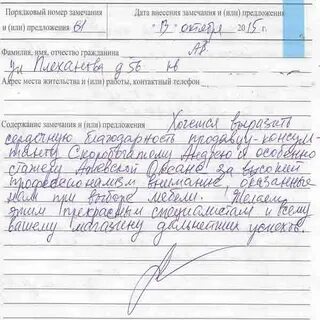 Порядковый номер замечания
и (или) предложения 61
Дата внесения замечания и (или) предложения
"13" октября 2015 г.
Фамилия, имя, отчество гражданина
ул Плеханова д 56
Адрес места жительства и (или) работы, контактный телефон
Содержание замечания и (или) предложения Хочется выразить
огромную благодарность продавцу-консуль-
танту Скоробогатому Андрею и особенно
стажеру Оксане за высокий
профессионализм внимание оказанные
нам при выборе мебели. Желаем
этим прекрасным специалистам и всему
вашему магазину дальнейших успехов.